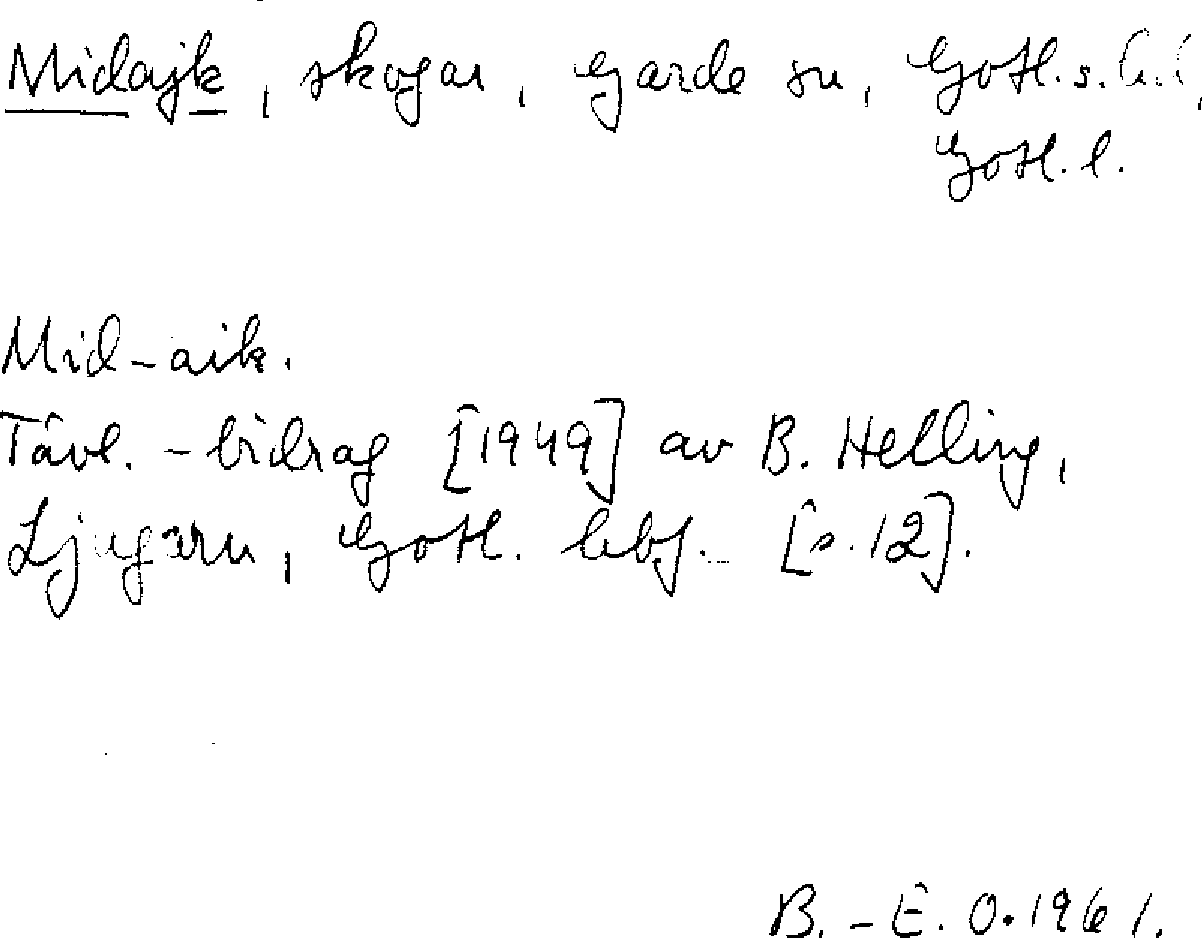 Midajk, skogar, Garde sn, Gotl. s. hd,
Gotl. l.
Mid-aik.
Tävl. - bidrag [1949] av B. Helling,
Ljugarn, Gotl. lbf. [s. 12].
B. - E. O. 1961.